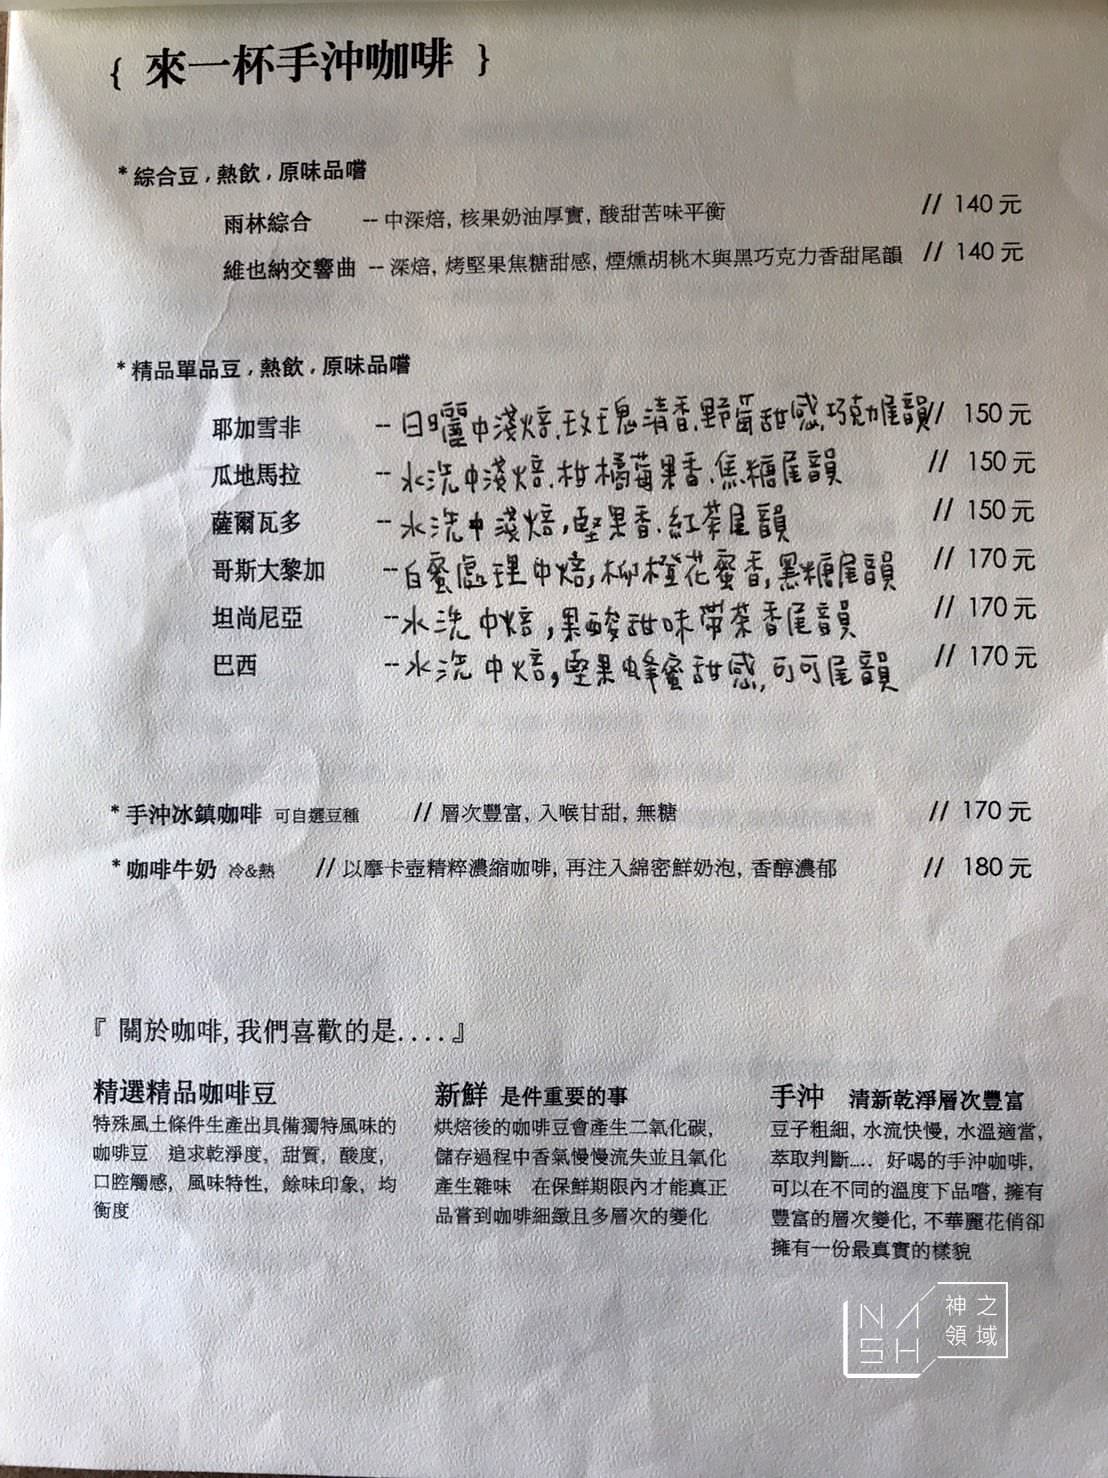 { 來一杯手沖咖啡 }
* 綜合豆 , 熱飲 , 原味品嚐
雨林綜合 -- 中深焙, 核果奶油厚實, 酸甜苦味平衡 // 140 元
維也納交響曲 -- 深焙, 烤堅果焦糖甜感, 煙燻胡桃木與黑巧克力香甜尾韻 // 140 元
* 精品單品豆 , 熱飲 , 原味品嚐
耶加雪非 -- 日曬中淺焙.玫瑰清香.野莓甜感.巧克力尾韻 // 150 元
瓜地馬拉 -- 水洗中淺焙.柑橘莓果香.焦糖尾韻 // 150 元
薩爾瓦多 -- 水洗中淺焙,堅果香.紅茶尾韻 // 150 元
哥斯大黎加 -- 白蜜處理中焙,柳橙花蜜香,黑糖尾韻 // 170 元
坦尚尼亞 -- 水洗中焙,果酸甜味帶茶香尾韻 // 170 元
巴西 -- 水洗中焙,堅果蜂蜜甜感,可可尾韻 // 170 元
* 手沖冰鎮咖啡 可自選豆種 // 層次豐富, 入喉甘甜, 無糖 // 170 元
* 咖啡牛奶 冷&熱 // 以摩卡壺精粹濃縮咖啡, 再注入綿密鮮奶泡, 香醇濃郁 // 180 元
『 關於咖啡, 我們喜歡的是.... 』
精選精品咖啡豆
特殊風土條件生產出具備獨特風味的
咖啡豆 追求乾淨度, 甜質, 酸度,
口腔觸感, 風味特性, 餘味印象, 均
衡度
新鮮 是件重要的事
烘焙後的咖啡豆會產生二氧化碳,
儲存過程中香氣慢慢流失並且氧化
產生雜味 在保鮮期限內才能真正
品嘗到咖啡細緻且多層次的變化
手沖 清新乾淨層次豐富
豆子粗細, 水流快慢, 水溫適當,
萃取判斷..... 好喝的手沖咖啡,
可以在不同的溫度下品嚐, 擁有
豐富的層次變化, 不華麗花俏卻
擁有一份最真實的樣貌
NASH
神之
領域